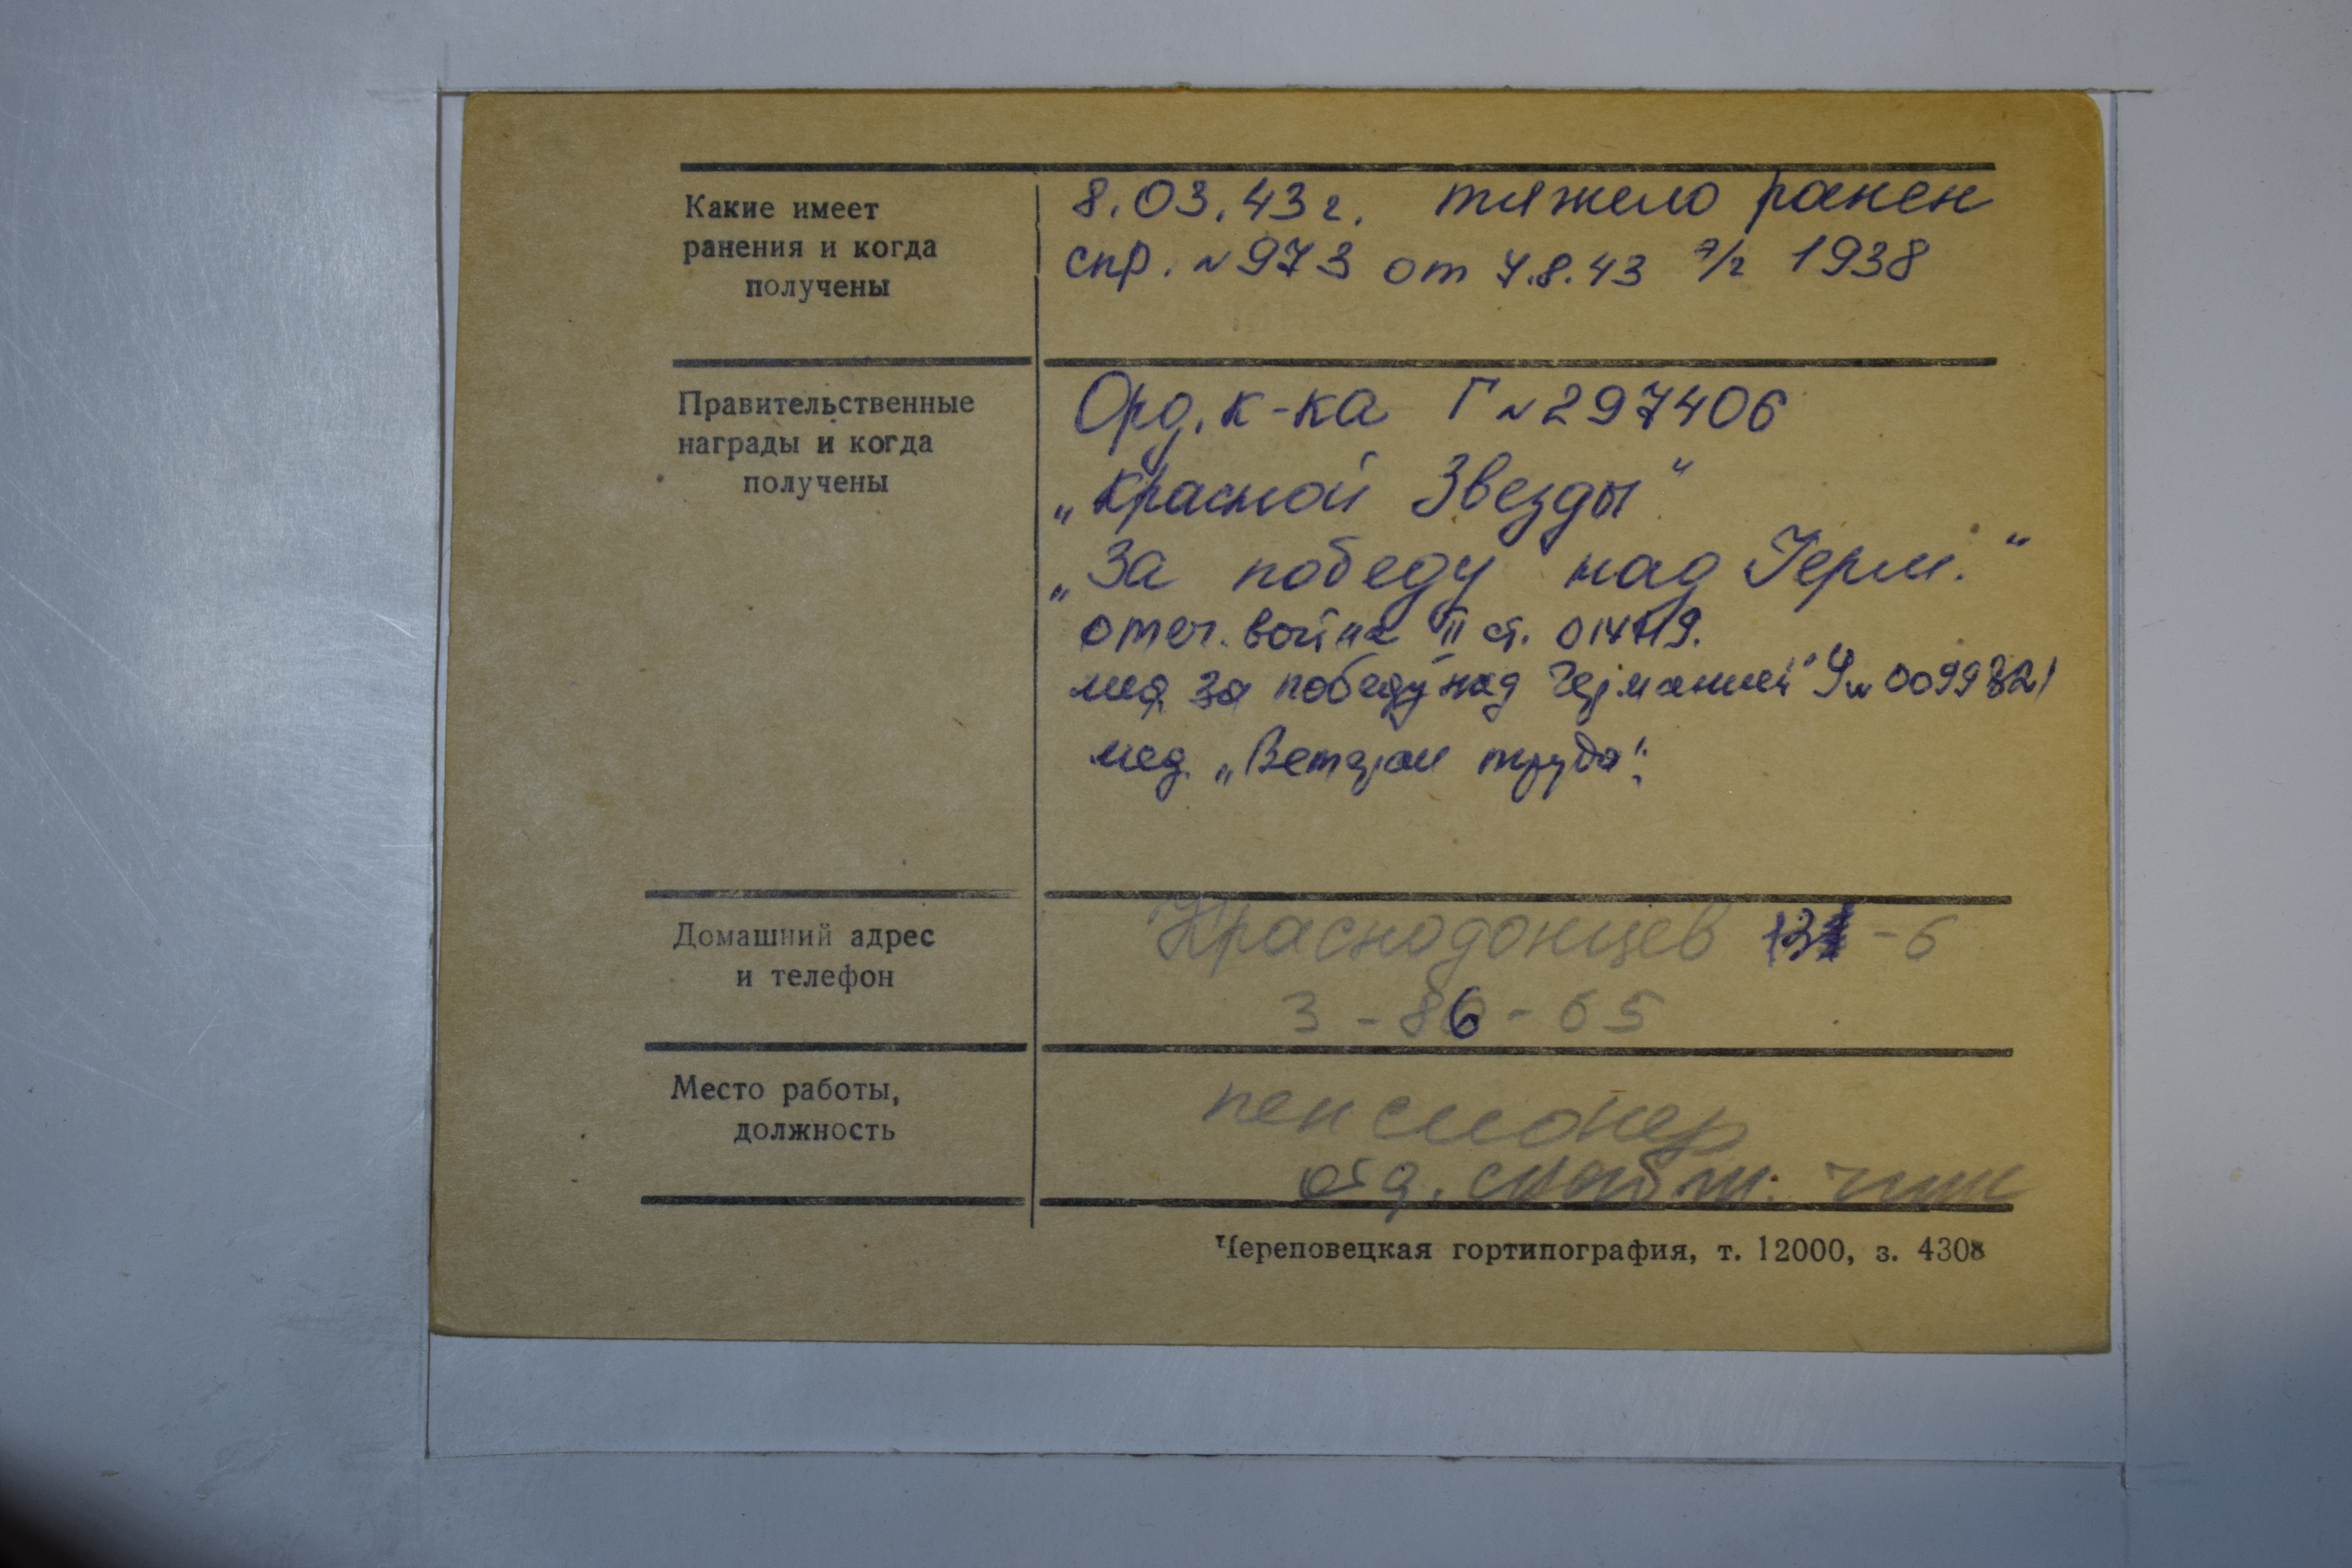 Какие имеет
ранения и когда
получены
8.03.43 г. тяжело ранен
спр. N 973 от 7.8.43 э/г 1938
Правительственные
награды и когда
получены
Орд. к-ка Г N 297406
„Красной Звезды"
„За победу над Герм."
отеч. война II ст.
мед. за победу над Германией" N 0099821
мед. „Ветеран труда".
Домашний адрес
и телефон
Краснодонцев -6
3-86-65
Место работы,
должность
пенсионер
Череповецкая гортипография, т. 12000, з. 4308